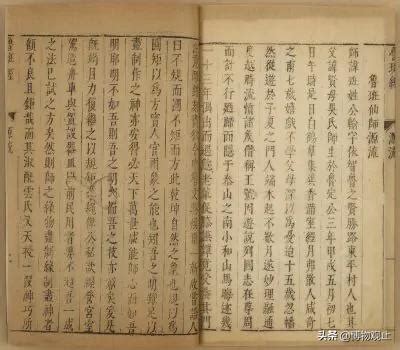 魯班經
源流
魯班仙師源流
師諱班姓公輸字依智魯之賢勝路東平村人也其
父諱賢母吳氏師生於魯定公三年甲戌五月初七
日午時是日白鶴群集異香滿室經月弗散人咸奇
之甫七歲嬉戲不學父母深以為憂迨十五歲忽幡
然從遊於子夏之門人端木起不數月遂妙理融通
度越時流憤諸侯僭稱王號因遊說列國志在尊周
而計不行廼歸而隱于泰山之南小和山焉晦迹幾
一十三年偶出而遇鮑老輩促膝讌譚竟受業其門
曰不規而圓不矩而方此乾坤自然之象也規以為
圓矩以為方實人官兩象之能也矧吾之明雖足以
盡制作之神亦安得必天下萬世咸能師心而如吾
明耶明不如吾則吾之明窮而吾之技亦窮矣爰是
既竭目力復繼之以規矩準繩俾公私欲經營宮室
駕造舟車與置設器皿以前民用者要不超吾一成
之法已試之方矣然則師之緣物盡制緣制盡神者
顧不良且鉅哉而其淑配雲氏又天授一段神巧所
魯班經
源流
头条 @博物观止